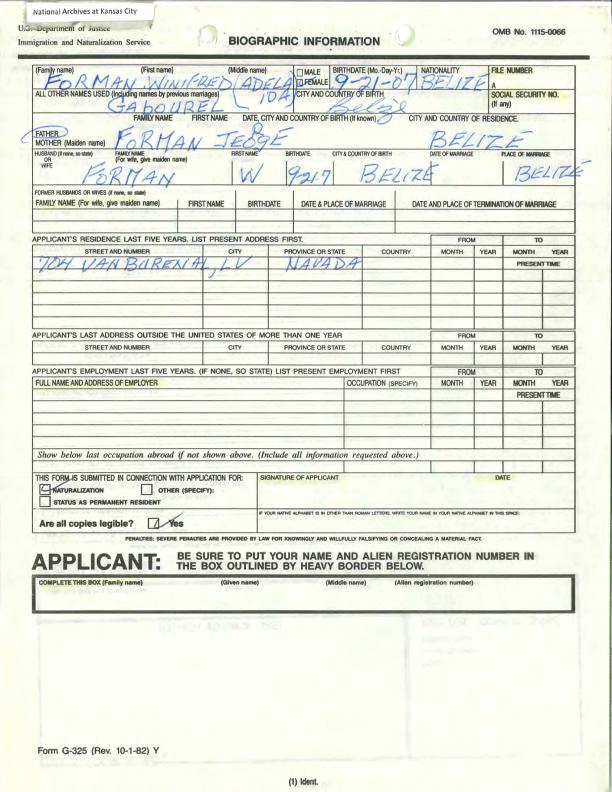 National Archives at Kansas City
U.S. Department of Justice
Immigration and Naturalization Service
BIOGRAPHIC INFORMATION
OMB No. 1115-0066
(Family name) (First name) (Middle name) MALE FEMALE BIRTHDATE (Mo.-Day-Yr.) NATIONALITY FILE NUMBER
FORMAN WINIFRED ADELA 9-21-07 BELIZE A
IDA
ALL OTHER NAMES USED (Including names by previous marriages) CITY AND COUNTRY OF BIRTH SOCIAL SECURITY NO. (If any)
GABOUREL Belize
FAMILY NAME FIRST NAME DATE, CITY AND COUNTRY OF BIRTH (If known) CITY AND COUNTRY OF RESIDENCE.
FATHER
MOTHER (Maiden name) FORMAN BELIZE
HUSBAND (If none, so state) OR WIFE FAMILY NAME (For wife, give maiden name) FIRST NAME BIRTHDATE CITY & COUNTRY OF BIRTH DATE OF MARRIAGE PLACE OF MARRIAGE
FORMAN W 9-217 BELIZE BELIZE
FORMER HUSBANDS OR WIVES (if none, so state)
FAMILY NAME (For wife, give maiden name) FIRST NAME BIRTHDATE DATE & PLACE OF MARRIAGE DATE AND PLACE OF TERMINATION OF MARRIAGE
APPLICANT'S RESIDENCE LAST FIVE YEARS. LIST PRESENT ADDRESS FIRST. FROM TO
STREET AND NUMBER CITY PROVINCE OR STATE COUNTRY MONTH YEAR MONTH YEAR
704 VAN BURENAL, LV NAVADA PRESENT TIME
APPLICANT'S LAST ADDRESS OUTSIDE THE UNITED STATES OF MORE THAN ONE YEAR FROM TO
STREET AND NUMBER CITY PROVINCE OR STATE COUNTRY MONTH YEAR MONTH YEAR
APPLICANT'S EMPLOYMENT LAST FIVE YEARS. (IF NONE, SO STATE) LIST PRESENT EMPLOYMENT FIRST FROM TO
FULL NAME AND ADDRESS OF EMPLOYER OCCUPATION (SPECIFY) MONTH YEAR MONTH YEAR
PRESENT TIME
Show below last occupation abroad if not shown above. (Include all information requested above.)
THIS FORM IS SUBMITTED IN CONNECTION WITH APPLICATION FOR: SIGNATURE OF APPLICANT DATE
NATURALIZATION OTHER (SPECIFY):
STATUS AS PERMANENT RESIDENT
IF YOUR NATIVE ALPHABET IS IN OTHER THAN ROMAN LETTERS, WRITE YOUR NAME IN YOUR NATIVE ALPHABET IN THIS SPACE:
Are all copies legible? Yes
PENALTIES: SEVERE PENALTIES ARE PROVIDED BY LAW FOR KNOWINGLY AND WILLFULLY FALSIFYING OR CONCEALING A MATERIAL FACT.
APPLICANT: BE SURE TO PUT YOUR NAME AND ALIEN REGISTRATION NUMBER IN
THE BOX OUTLINED BY HEAVY BORDER BELOW.
COMPLETE THIS BOX (Family name) (Given name) (Middle name) (Alien registration number)
Form G-325 (Rev. 10-1-82) Y
(1) Ident.